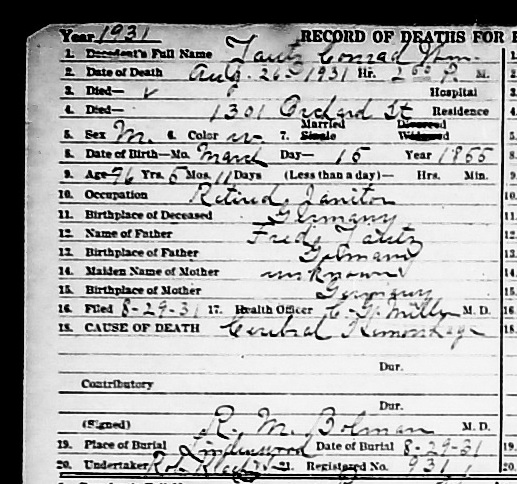 Year 1931 RECORD OF DEATHS FOR
1. Decedent's Full Name Tautz Conrad Wm.
2. Date of Death Aug. 26 - 1931 Hr. 2 00 P. M.
3. Died— Hospital
4. Died— 1301 Orchard St Residence
5. Sex M. 6. Color W 7. Married Single Divorced Widowed
8. Date of Birth—Mo. March Day— 15 Year 1855
9. Age 76 Yrs. 5 Mos. 11 Days (Less than a day)— Hrs. Min.
10. Occupation Retired Janitor
11. Birthplace of Deceased Germany
12. Name of Father Fred Tautz
13. Birthplace of Father Germany
14. Maiden Name of Mother unknown
15. Birthplace of Mother Germany
16. Filed 8-29-31 17. Health Officer Miller M. D.
18. CAUSE OF DEATH Cerebral Hemorrhage
Dur.
Contributory
Dur.
(Signed) R. M. Bolman M. D.
19. Place of Burial Lindenwood Date of Burial 8-29-31
20. Undertaker 21. Registered No. 931